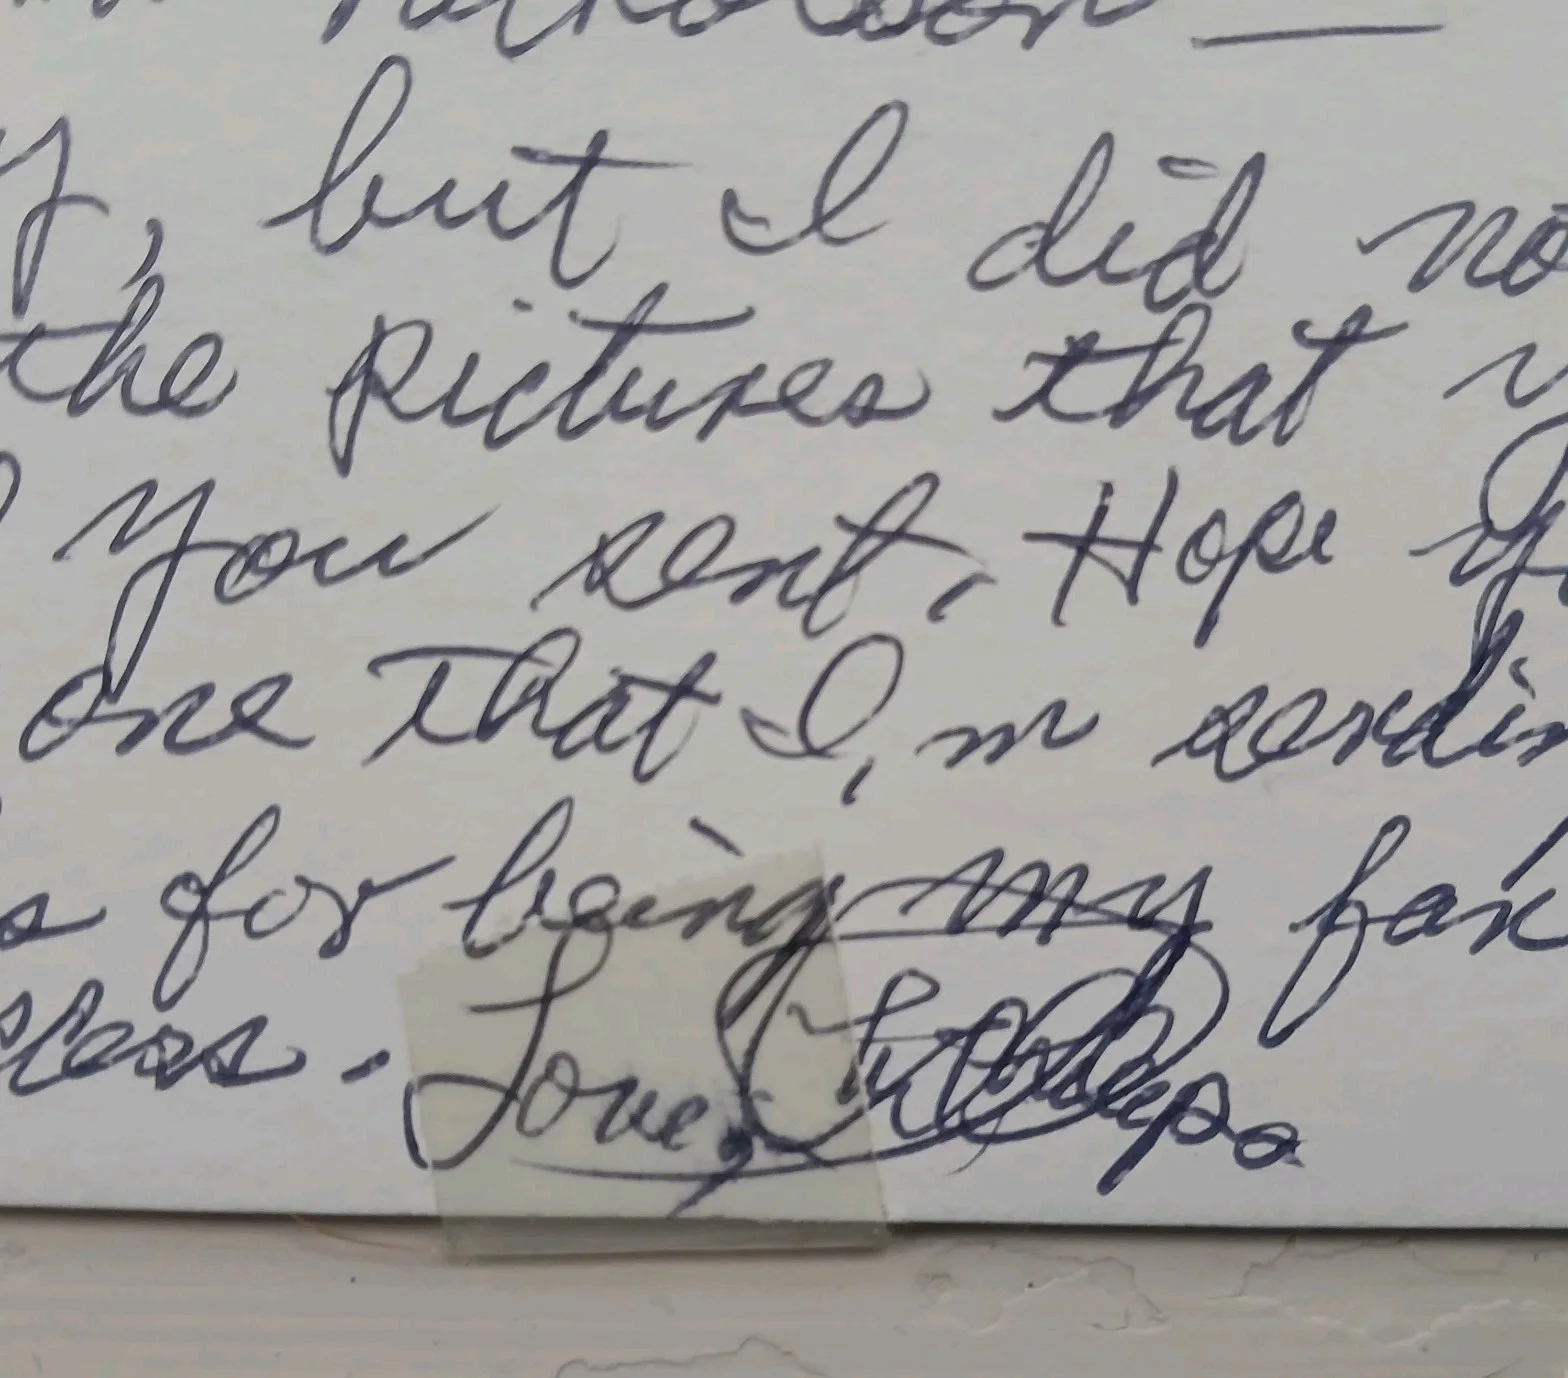 y, but I did no
the pictures that y
you sent. Hope y
one that I,m sendin
s for being my fan
Love,